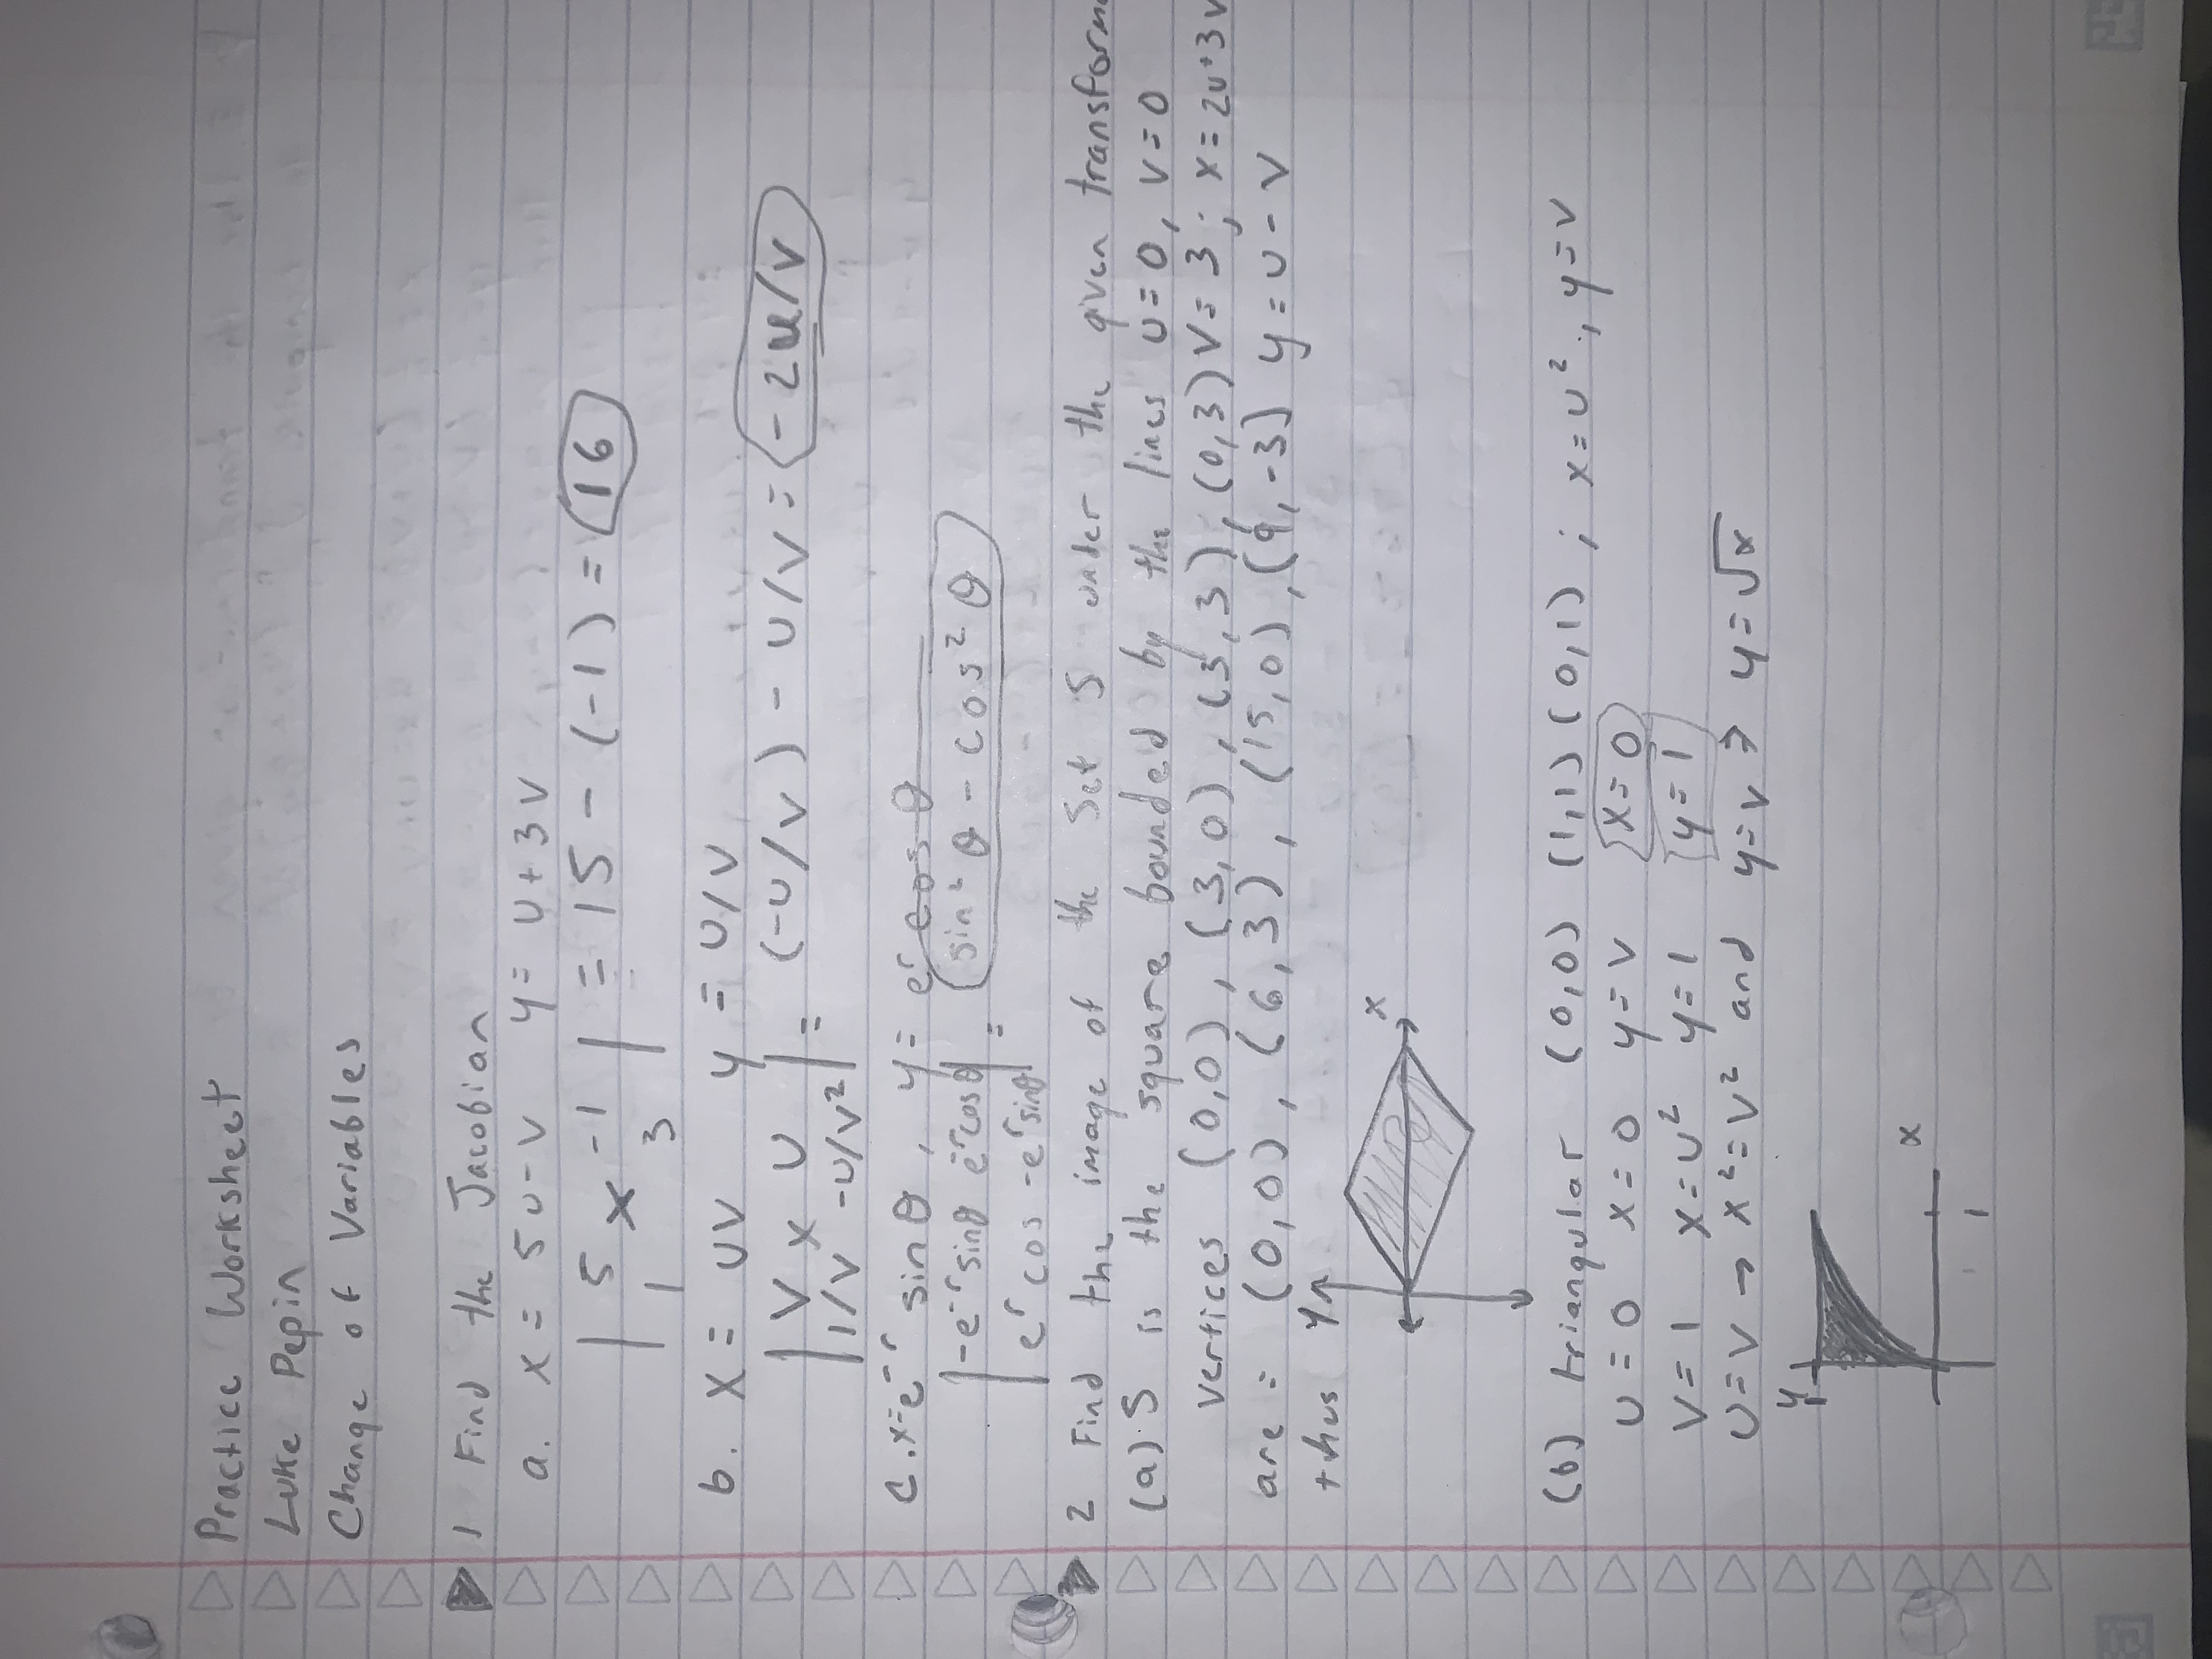 Practice Worksheet
Luke Pepin
Change of Variables
1 Find the Jacobian
a. x = 5u-v y = u+3v
| 5 x -1 | = 15 - (-1) = 16
1 3
b. x = uv y = u/v
| v x u | = (-u/v) - u/v = -2u/v
1/v -u/v²
c. x=e^-r sinθ, y= e^r cosθ
| -e^-r sinθ e^-r cosθ | = sin²θ - cos²θ
e^r cos -e^r sinθ
2 Find the image of the set S under the given transform
(a). S is the square bounded by the lines u=0, v=0
vertices (0,0), (3,0), (3,3), (0,3) v=3; x=2u+3v
are: (0,0), (6,3), (15,0), (9,-3) y=u-v
thus y
x
(b) triangular (0,0) (1,1) (0,1); x=u², y=v
u=0 x=0 y=v x=0
v=1 x=u² y=1 y=1
u=v → x²=v² and y=v ⇒ y=√x
y
1
x
1